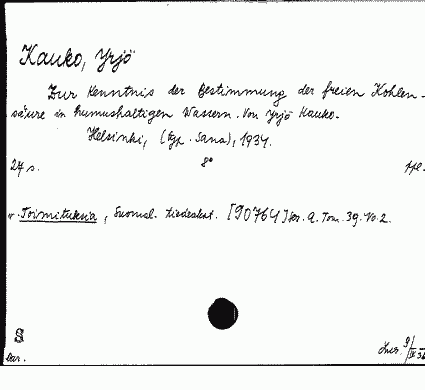 Kauko, Yrjö
Zur Kenntnis der Bestimmung der freien Kohlen-
säure in humushaltigen Wassern. Von Yrjö Kauko.
Helsinki, (typ. Sana), 1934.
27 s. 8° ppl.
v. Toimituksia, Suomal. tiedeakat. [90764] Ser. A. Tom. 39. No 2.
S